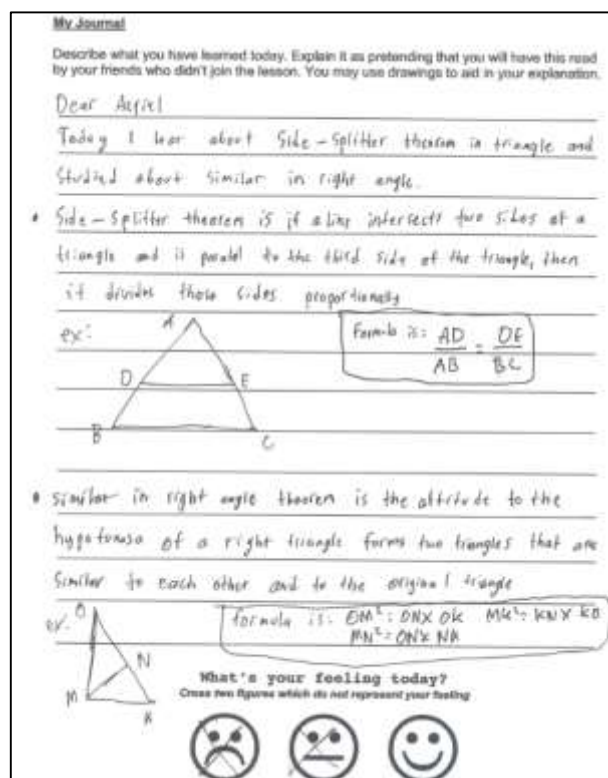 My Journal
Describe what you have learned today. Explain it as pretending that you will have this read
by your friends who didn't join the lesson. You may use drawings to aid in your explanation.
Dear
Today I about Side-Splitter theorem in triangle and
Studied about similar in right angle.
• Side-Splitter theorem is if a line intersects two sides of a
triangle and is paralel to the third side of the triangle, then
it divides those sides proportionally
ex:
A
D
E
B
C
Formula is: AD/AB = DE/BC
• similar in right angle theorem is the altitude to the
hypotenusa of a right triangle forms two triangles that are
Similar to each other and to the original triangle
ex:
O
N
M
K
formula is: OM² = ON x OK MK² = KN x KO
MN² = ON x NK
What's your feeling today?
Cross two figures which do not represent your feeling